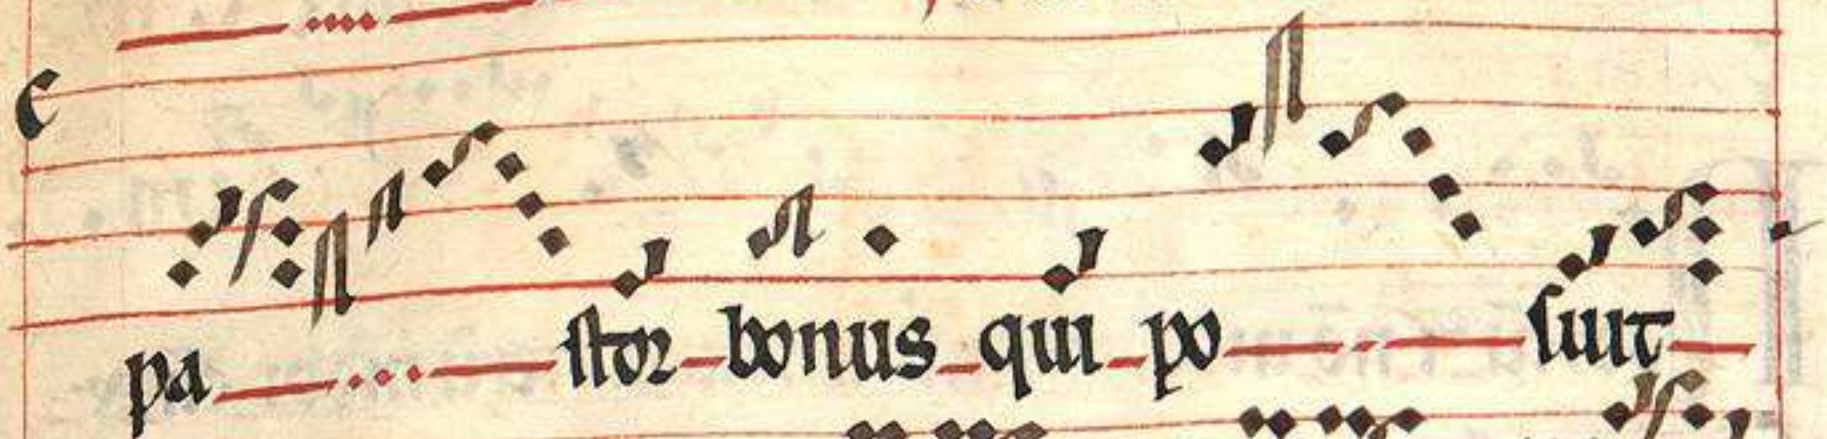 pa stor bonus qui po suit